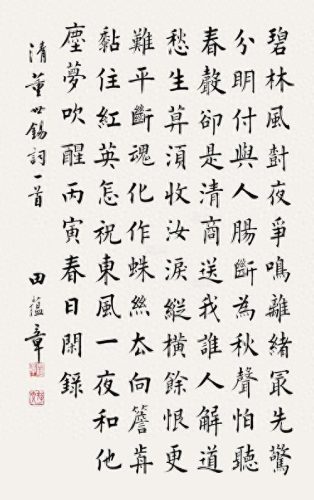 碧林風對夜爭鳴離緒冣先驚
分明付與人腸斷為秋聲怕聽
春聲卻是清商送我誰人解道
愁生算湏收汝淚縱橫餘恨更
難平斷魂化作蛛絲厺向簷歬
黏住紅英怎祝東風一夜和他
塵夢吹醒丙寅春日閑錄
清董世錫詞一首 田蘊章